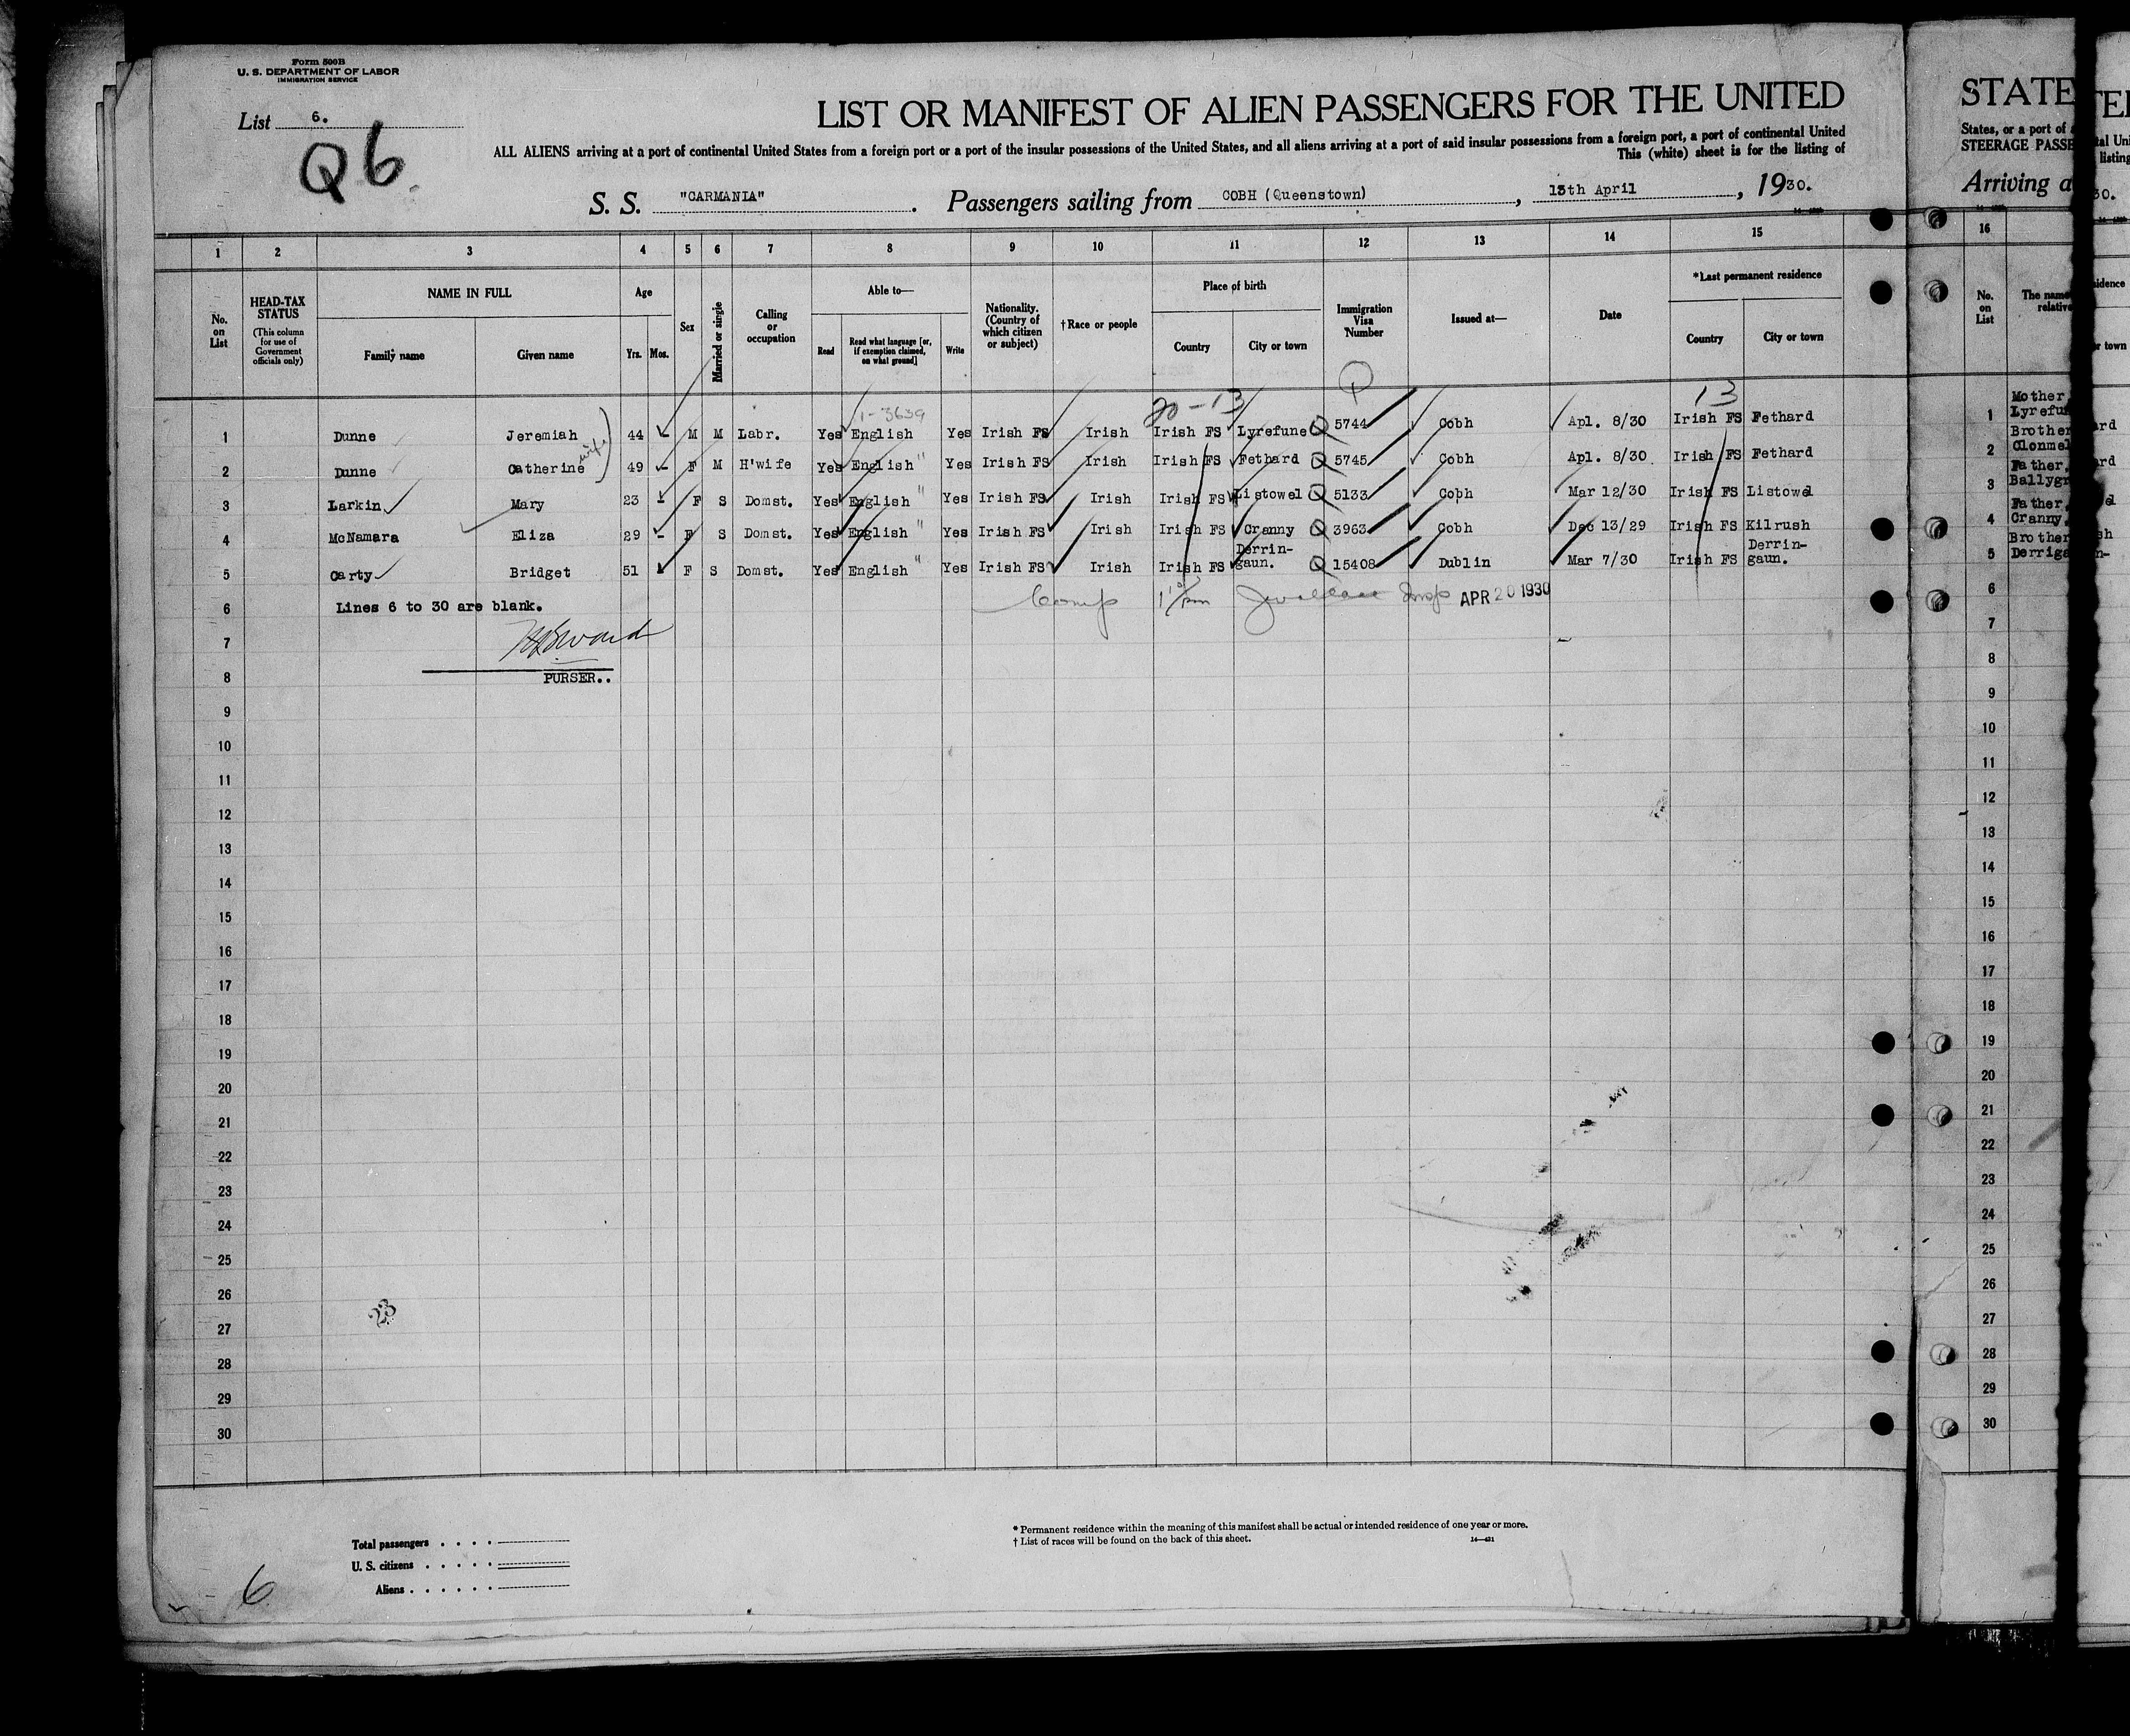 Form 500B
U. S. DEPARTMENT OF LABOR
IMMIGRATION SERVICE
List 6.
Q6
LIST OR MANIFEST OF ALIEN PASSENGERS FOR THE UNITED
ALL ALIENS arriving at a port of continental United States from a foreign port or a port of the insular possessions of the United States, and all aliens arriving at a port of said insular possessions from a foreign port, a port of continental United
This (white) sheet is for the listing of
S. S. "CARMANIA". Passengers sailing from COBH (Queenstown), 13th April, 1930.
1 2 3 4 5 6 7 8 9 10 11 12 13 14 15
No. on List
HEAD-TAX STATUS
(This column for use of Government officials only)
NAME IN FULL
Family name
Given name
Age
Yrs. Mos.
Sex
Married or single
Calling or occupation
Able to—
Read
Read what language [or, if exemption claimed, on what ground]
Write
Nationality. (Country of which citizen or subject)
† Race or people
Place of birth
Country
City or town
Immigration Visa Number
Issued at—
Date
*Last permanent residence
Country
City or town
1-3639
20-13
13
1 Dunne Jeremiah 44 - M M Labr. Yes English Yes Irish FS Irish Irish FS Lyrefune Q 5744 Cobh Apl. 8/30 Irish FS Fethard
wife
2 Dunne Catherine 49 - F M H'wife Yes English " Yes Irish FS Irish Irish FS Fethard Q 5745 Cobh Apl. 8/30 Irish FS Fethard
3 Larkin Mary 23 - F S Domst. Yes English " Yes Irish FS Irish Irish FS Listowel Q 5133 Cobh Mar 12/30 Irish FS Listowel
4 McNamara Eliza 29 - F S Domst. Yes English " Yes Irish FS Irish Irish FS Cranny Q 3963 Cobh Dec 13/29 Irish FS Kilrush
5 Carty Bridget 51 F S Domst. Yes English " Yes Irish FS Irish Irish FS Derrin-gaun. Q 15408 Dublin Mar 7/30 Irish FS Derrin-gaun.
6 Lines 6 to 30 are blank.
Comp Insp APR 20 1930
7
8 PURSER..
9
10
11
12
13
14
15
16
17
18
19
20
21
22
23
24
25
26
27
28
29
30
23
Total passengers
U. S. citizens
Aliens
6
* Permanent residence within the meaning of this manifest shall be actual or intended residence of one year or more.
† List of races will be found on the back of this sheet.
14—431
STATE
States, or a port of
STEERAGE PASSE
Arriving a
16
No. on List
The name
relative
1 Mother,
Lyrefun
2 Brother
Clonmel
3 Father,
Ballygr
4 Father,
Cranny,
5 Brother
Derriga
6
7
8
9
10
11
12
13
14
15
16
17
18
19
20
21
22
23
24
25
26
27
28
29
30